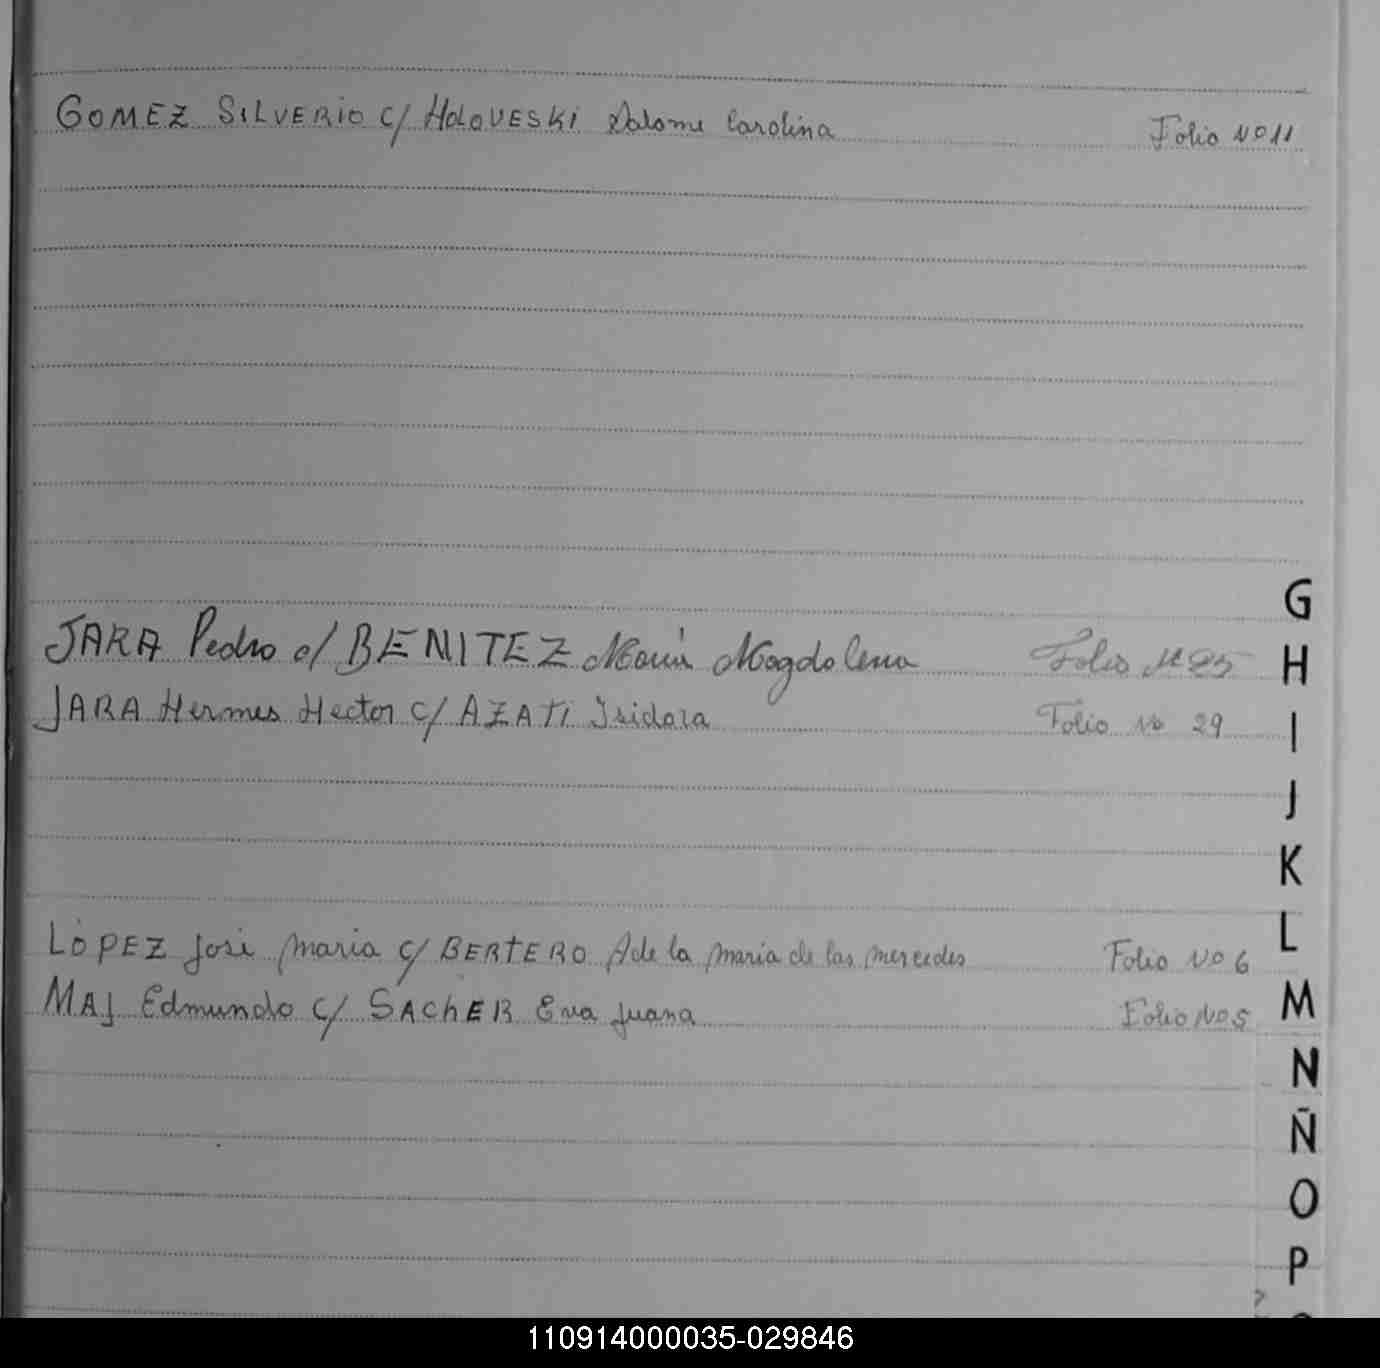 GOMEZ SILVERIO c/ HOLOVESKI Salome Carolina Folio Nº 11
JARA Pedro c/ BENITEZ María Magdalena Folio Nº 25
JARA Hermes Hector c/ AZATI Isidora Folio Nº 29
LÓPEZ José maria c/ BERTERO Adela maria de las mercedes Folio Nº 6
MAJ Edmundo c/ SACHER Eva Juana Folio Nº 5
G
H
I
J
K
L
M
N
Ñ
O
P
110914000035-029846